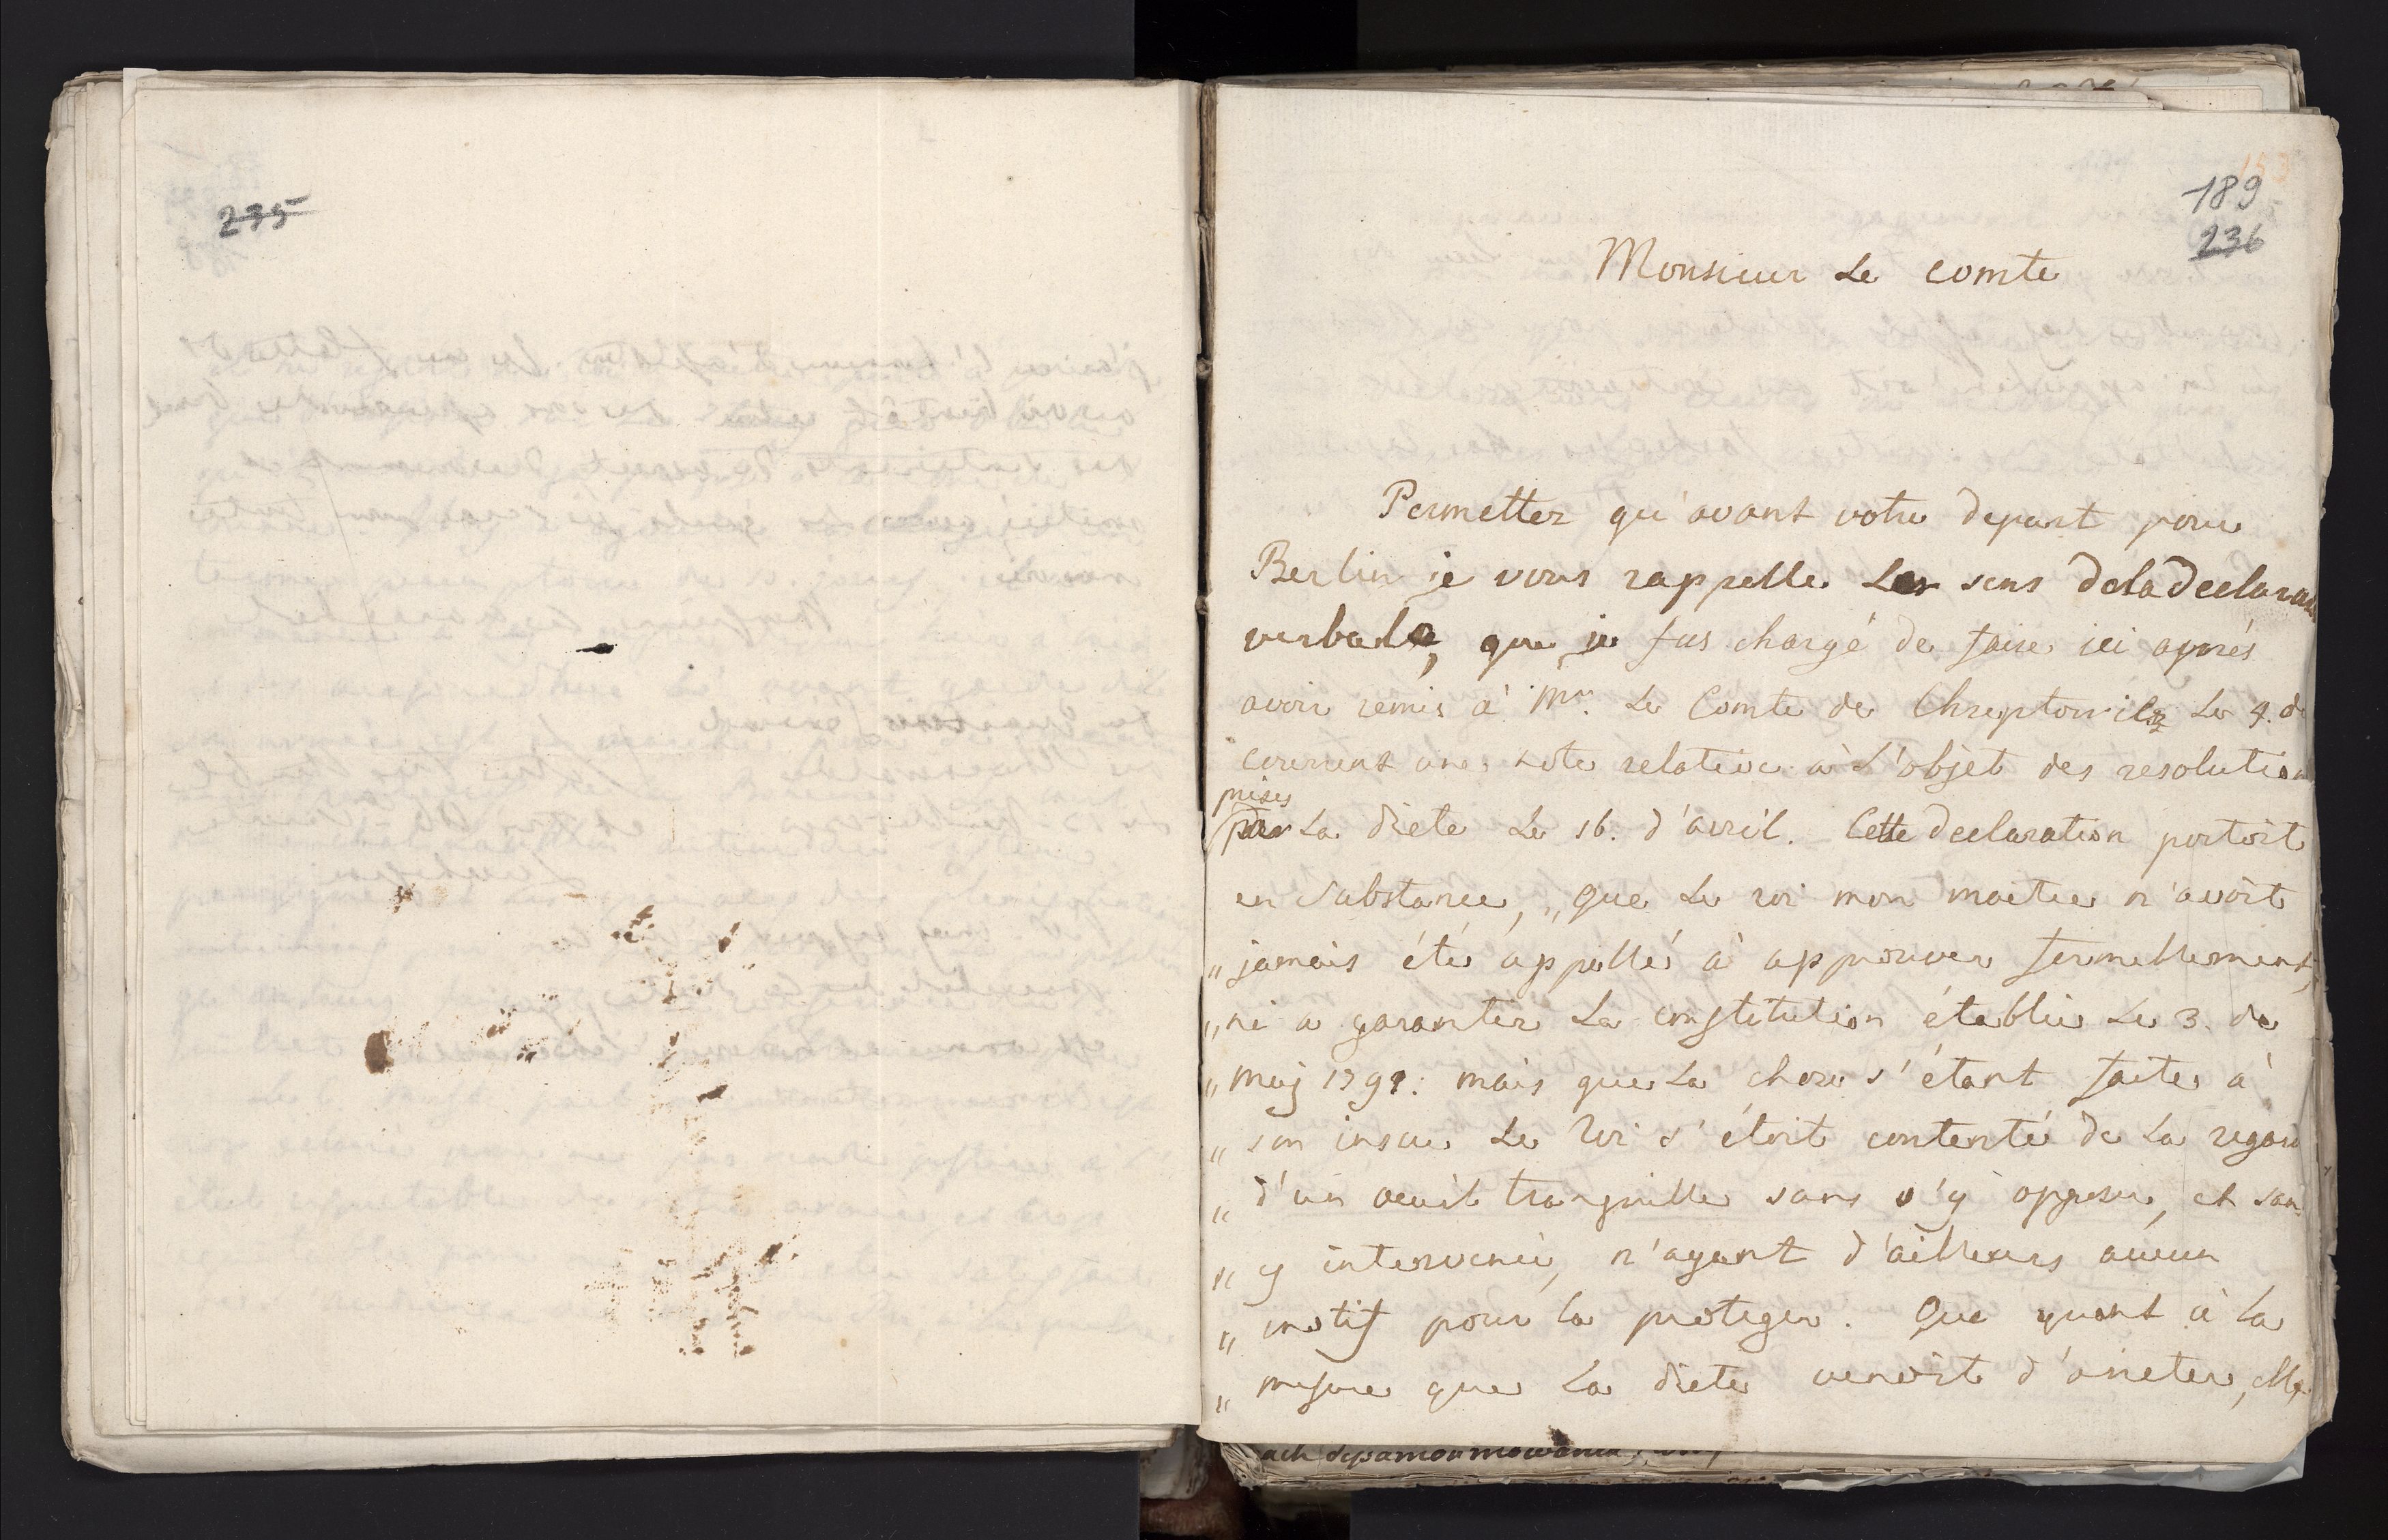 235
189
236
Monsieur Le comte
Permettez qu'avant votre depart pour
Berlin je vous rappelle Le sens de la declarat
verbale, que je fus chargé de faire ici aprés
avoir remis à Mr. Le Comte de Chreptowicz Le 4. d
courrant une note relative à L'objet des resolution
prises
par La diete Le 16. d'avril. Cette declaration portoit
en substance, „que Le roi mon maitre n'avoit
„jamais été appellé à approuver formellement,
„ni a garantir La constitution établie Le 3. de
„Maj 1791: mais que La chose s'étant faite à
„son insçu Le Roi s'étoit contenté de La regar
„d'un oeuil tranquille sans s'y opposer, et san
„y intervenir, n'ayant d'ailleurs aucun
„motif pour la proteger. Que quant à La
„mesure que La diete venoit d'arreter, elle